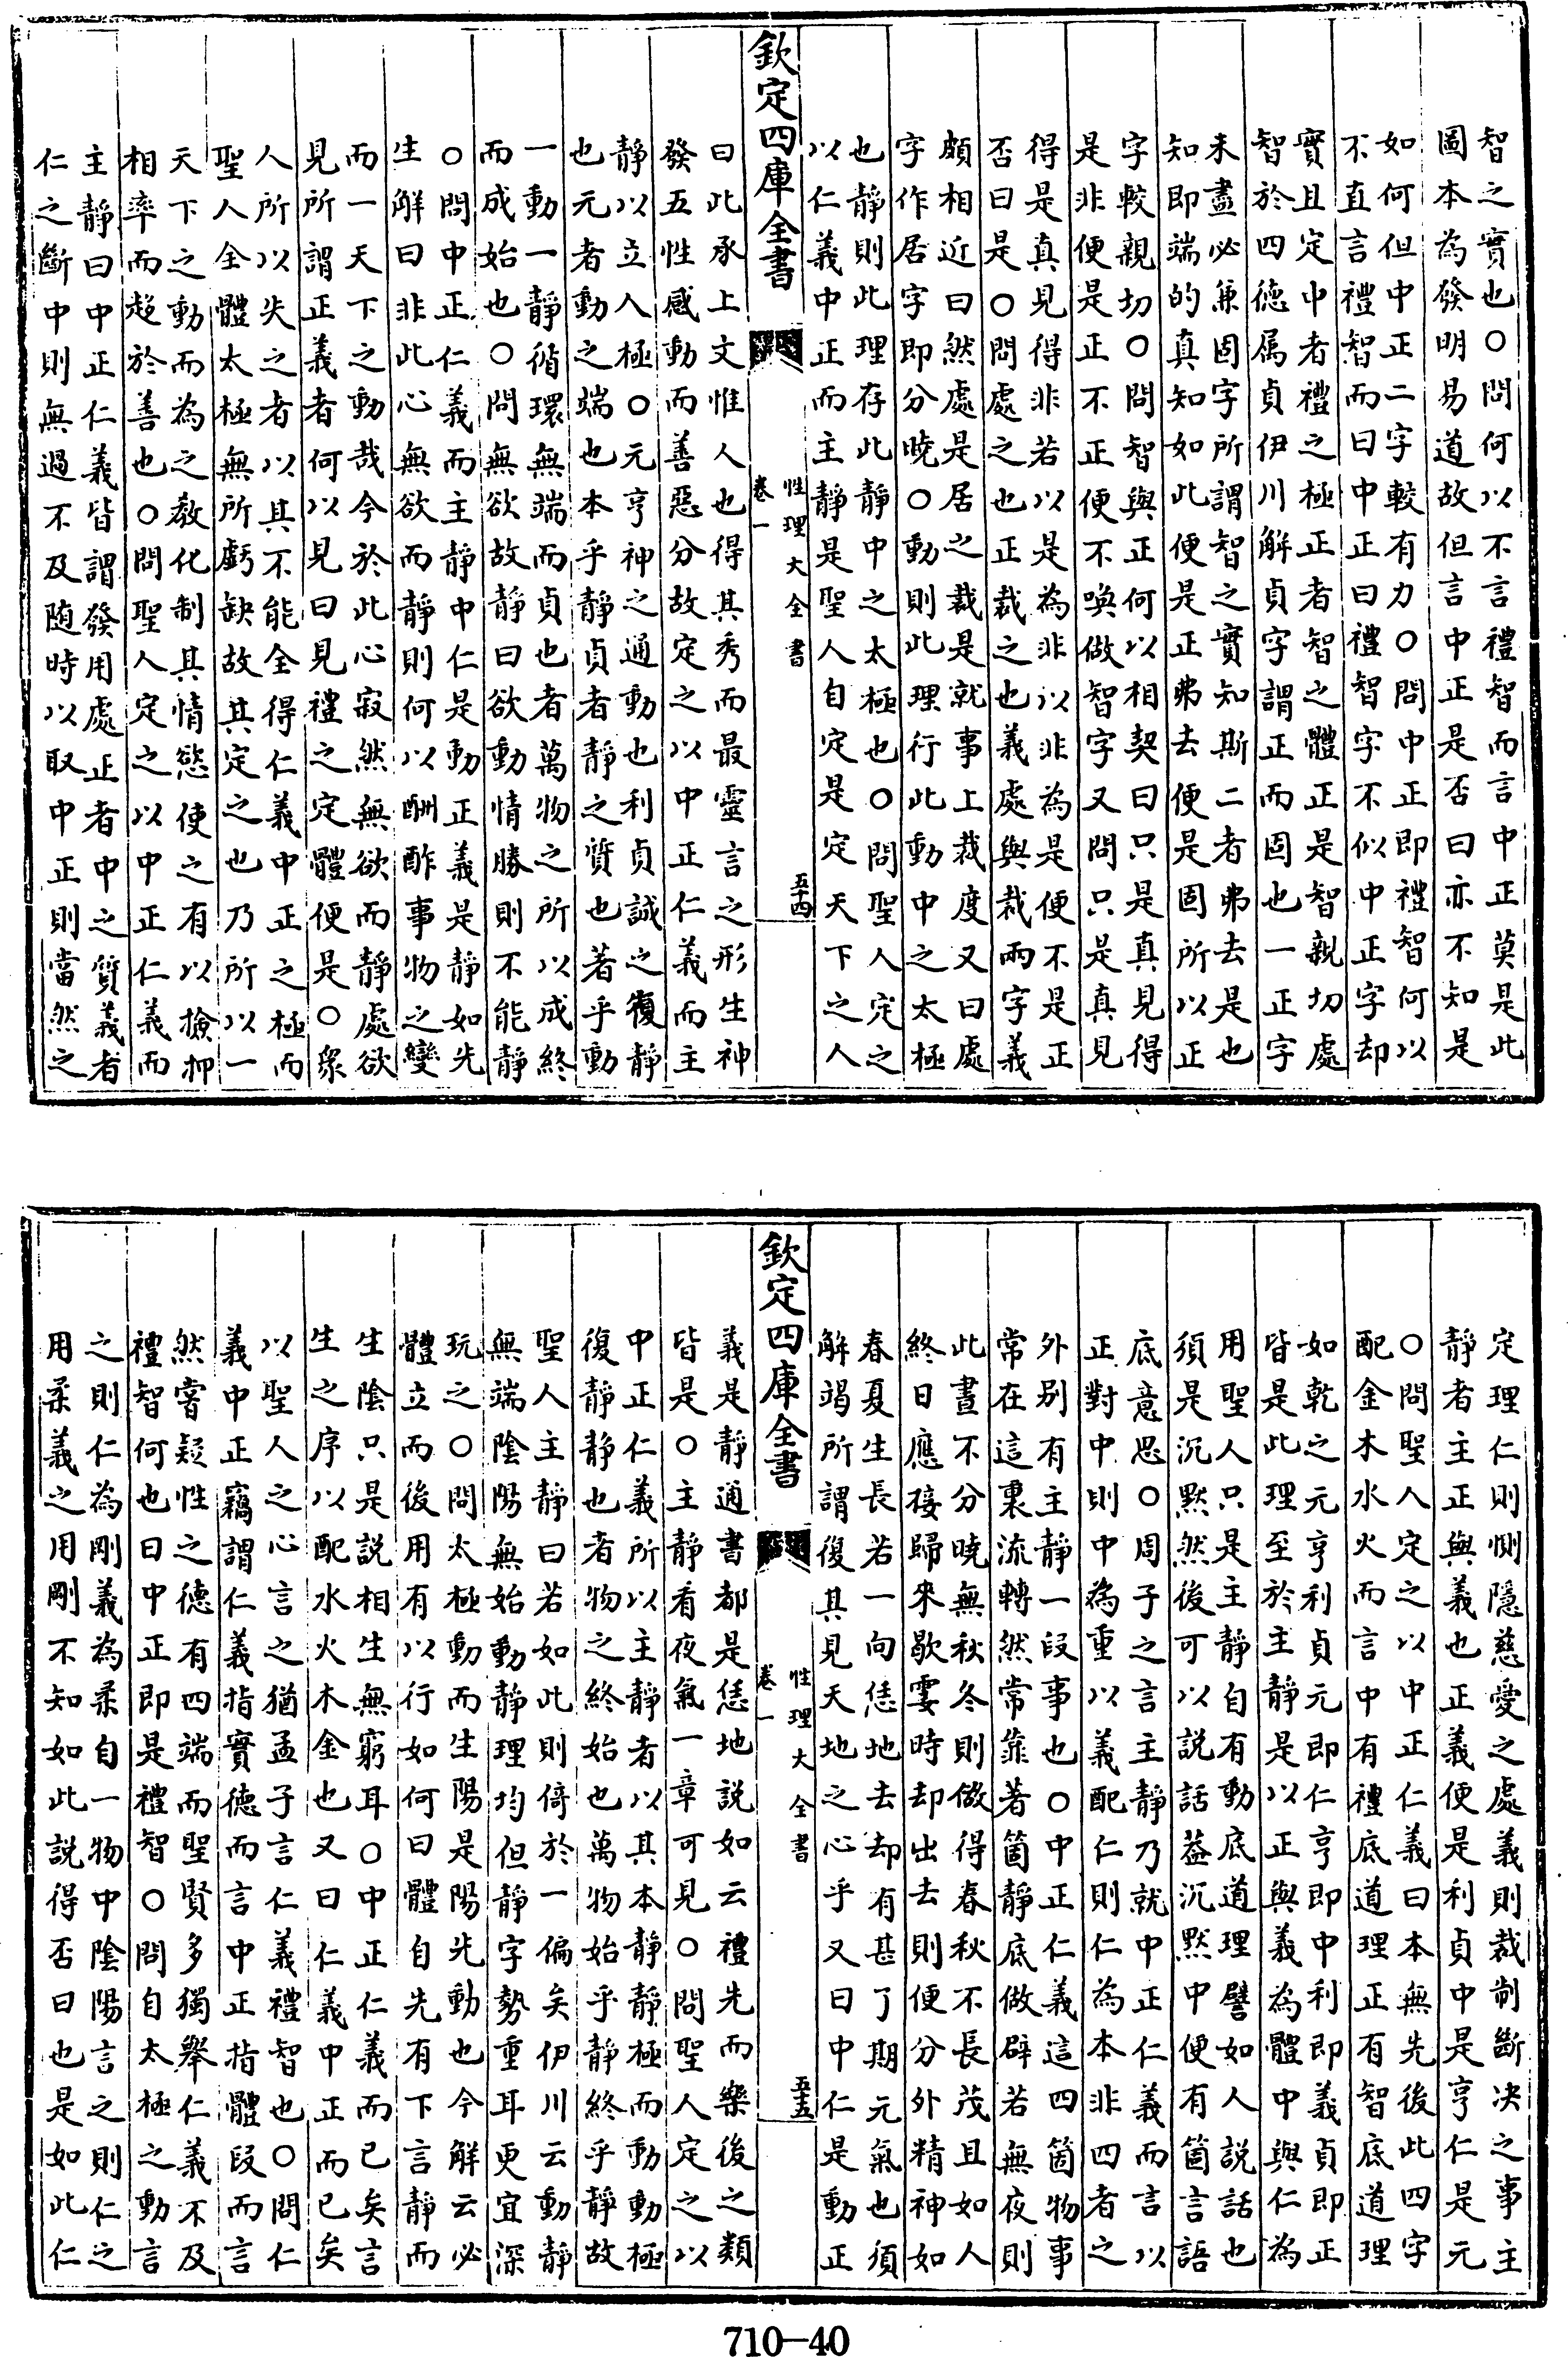 智之實也○問何以不言禮智而言中正莫是此
圖本為發明易道故但言中正是否曰亦不知是
如何但中正二字較有力○問中正即禮智何以
不直言禮智而曰中正曰禮智字不似中正字却
實且定中者禮之極正者智之體正是智親切處
智於四德属貞伊川解貞字謂正而固也一正字
未盡必兼固字所謂智之實知斯二者弗去是也
知即端的真知如此便是正弗去便是固所以正
字較親切○問智與正何以相契曰只是真見得
是非便是正不正便不喚做智字又問只是真見
得是真見得非若以是為非以非為是便不是正
否曰是○問處之也正裁之也義處與裁兩字義
頗相近曰然處是居之裁是就事上裁度又曰處
字作居字即分曉○動則此理行此動中之太極
也静則此理存此静中之太極也○問聖人定之
以仁義中正而主静是聖人自定是定天下之人
欽定四庫全書
性理大全書
卷一
五十四
曰此承上文惟人也得其秀而最靈言之形生神
發五性感動而善惡分故定之以中正仁義而主
静以立人極○元亨神之通動也利貞誠之復静
也元者動之端也本乎静貞者静之質也著乎動
一動一静循環無端而貞也者萬物之所以成終
而成始也○問無欲故静曰欲動情勝則不能静
○問中正仁義而主静中仁是動正義是静如先
生解曰非此心無欲而静則何以酬酢事物之變
而一天下之動哉今於此心寂然無欲而静處欲
見所謂正義者何以見曰見禮之定體便是○衆
人所以失之者以其不能全得仁義中正之極而
聖人全體太極無所虧缺故其定之也乃所以一
天下之動而為之教化制其情慾使之有以撿押
相率而趍於善也○問聖人定之以中正仁義而
主静曰中正仁義皆謂發用處正者中之質義者
仁之斷中則無過不及随時以取中正則當然之
定理仁則惻隱慈愛之處義則裁制斷决之事主
静者主正與義也正義便是利貞中是亨仁是元
○問聖人定之以中正仁義曰本無先後此四字
配金木水火而言中有禮底道理正有智底道理
如乾之元亨利貞元即仁亨即中利即義貞即正
皆是此理至於主静是以正與義為體中與仁為
用聖人只是主静自有動底道理譬如人説話也
須是沉黙然後可以説話葢沉黙中便有箇言語
底意思○周子之言主静乃就中正仁義而言以
正對中則中為重以義配仁則仁為本非四者之
外别有主静一段事也○中正仁義這四箇物事
常在這裏流轉然常靠著箇静底做辟若無夜則
此晝不分曉無秋冬則做得春秋不長茂且如人
終日應接歸來歇霎時却出去則便分外精神如
春夏生長若一向恁地去却有甚了期元氣也須
解竭所謂復其見天地之心乎又曰中仁是動正
欽定四庫全書
性理大全書
卷一
五十五
義是静通書都是恁地説如云禮先而樂後之類
皆是○主静看夜氣一章可見○問聖人定之以
中正仁義所以主静者以其本静静極而動動極
復静静也者物之終始也萬物始乎静終乎静故
聖人主静曰若如此則倚於一偏矣伊川云動静
無端陰陽無始動静理均但静字勢重耳更宜深
玩之○問太極動而生陽是陽先動也今解云必
體立而後用有以行如何曰體自先有下言静而
生陰只是説相生無窮耳○中正仁義而已矣言
生之序以配水火木金也又曰仁義中正而已矣
以聖人之心言之猶孟子言仁義禮智也○問仁
義中正竊謂仁義指實德而言中正指體段而言
然嘗疑性之德有四端而聖賢多獨舉仁義不及
禮智何也曰中正即是禮智○問自太極之動言
之則仁為剛義為柔自一物中陰陽言之則仁之
用柔義之用剛不知如此説得否曰也是如此仁
710-40